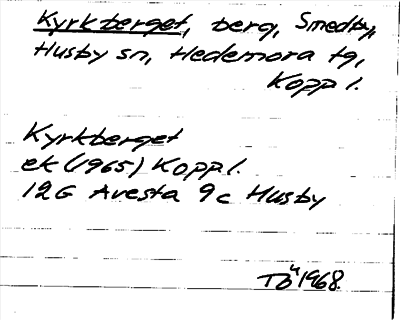 Kyrkberget, berg, Smedby,
Husby sn, Hedemora tg,
Kopp l.
Kyrkberget
ek (1965) Kopp l.
12G Avesta 9c Husby
1968.